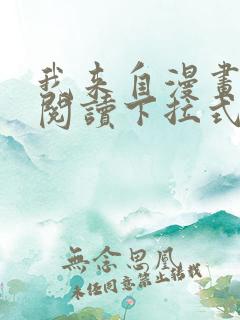 我来自漫畫
閱讀下拉式
無念思凰
未经同意禁止转载